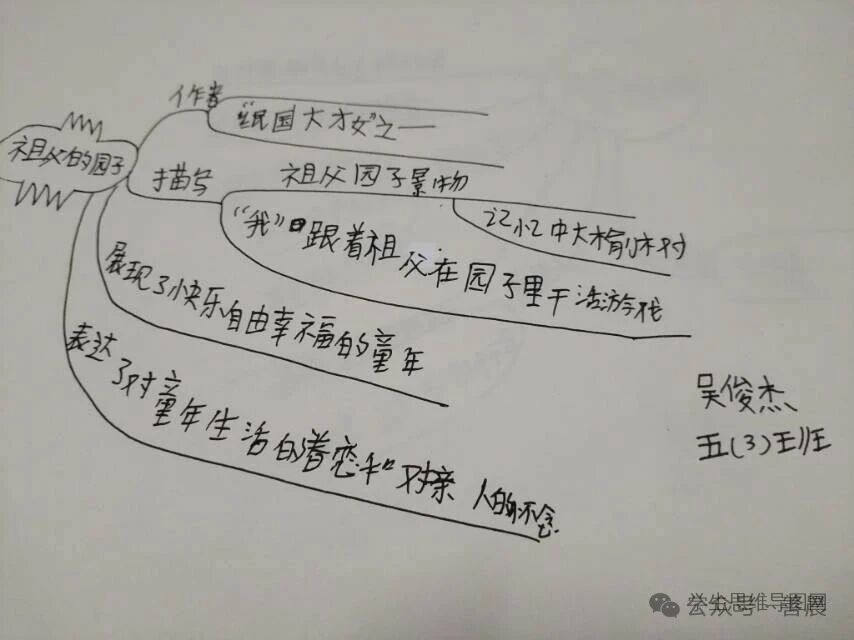 祖父的园子
作者
“民国大才女”之一
描写
祖父园子景物
记忆中大榆树
“我”跟着祖父在园子里干活游戏
展现了快乐自由幸福的童年
表达了对童年生活的眷恋和对亲人的怀念
吴俊杰
五(3)班